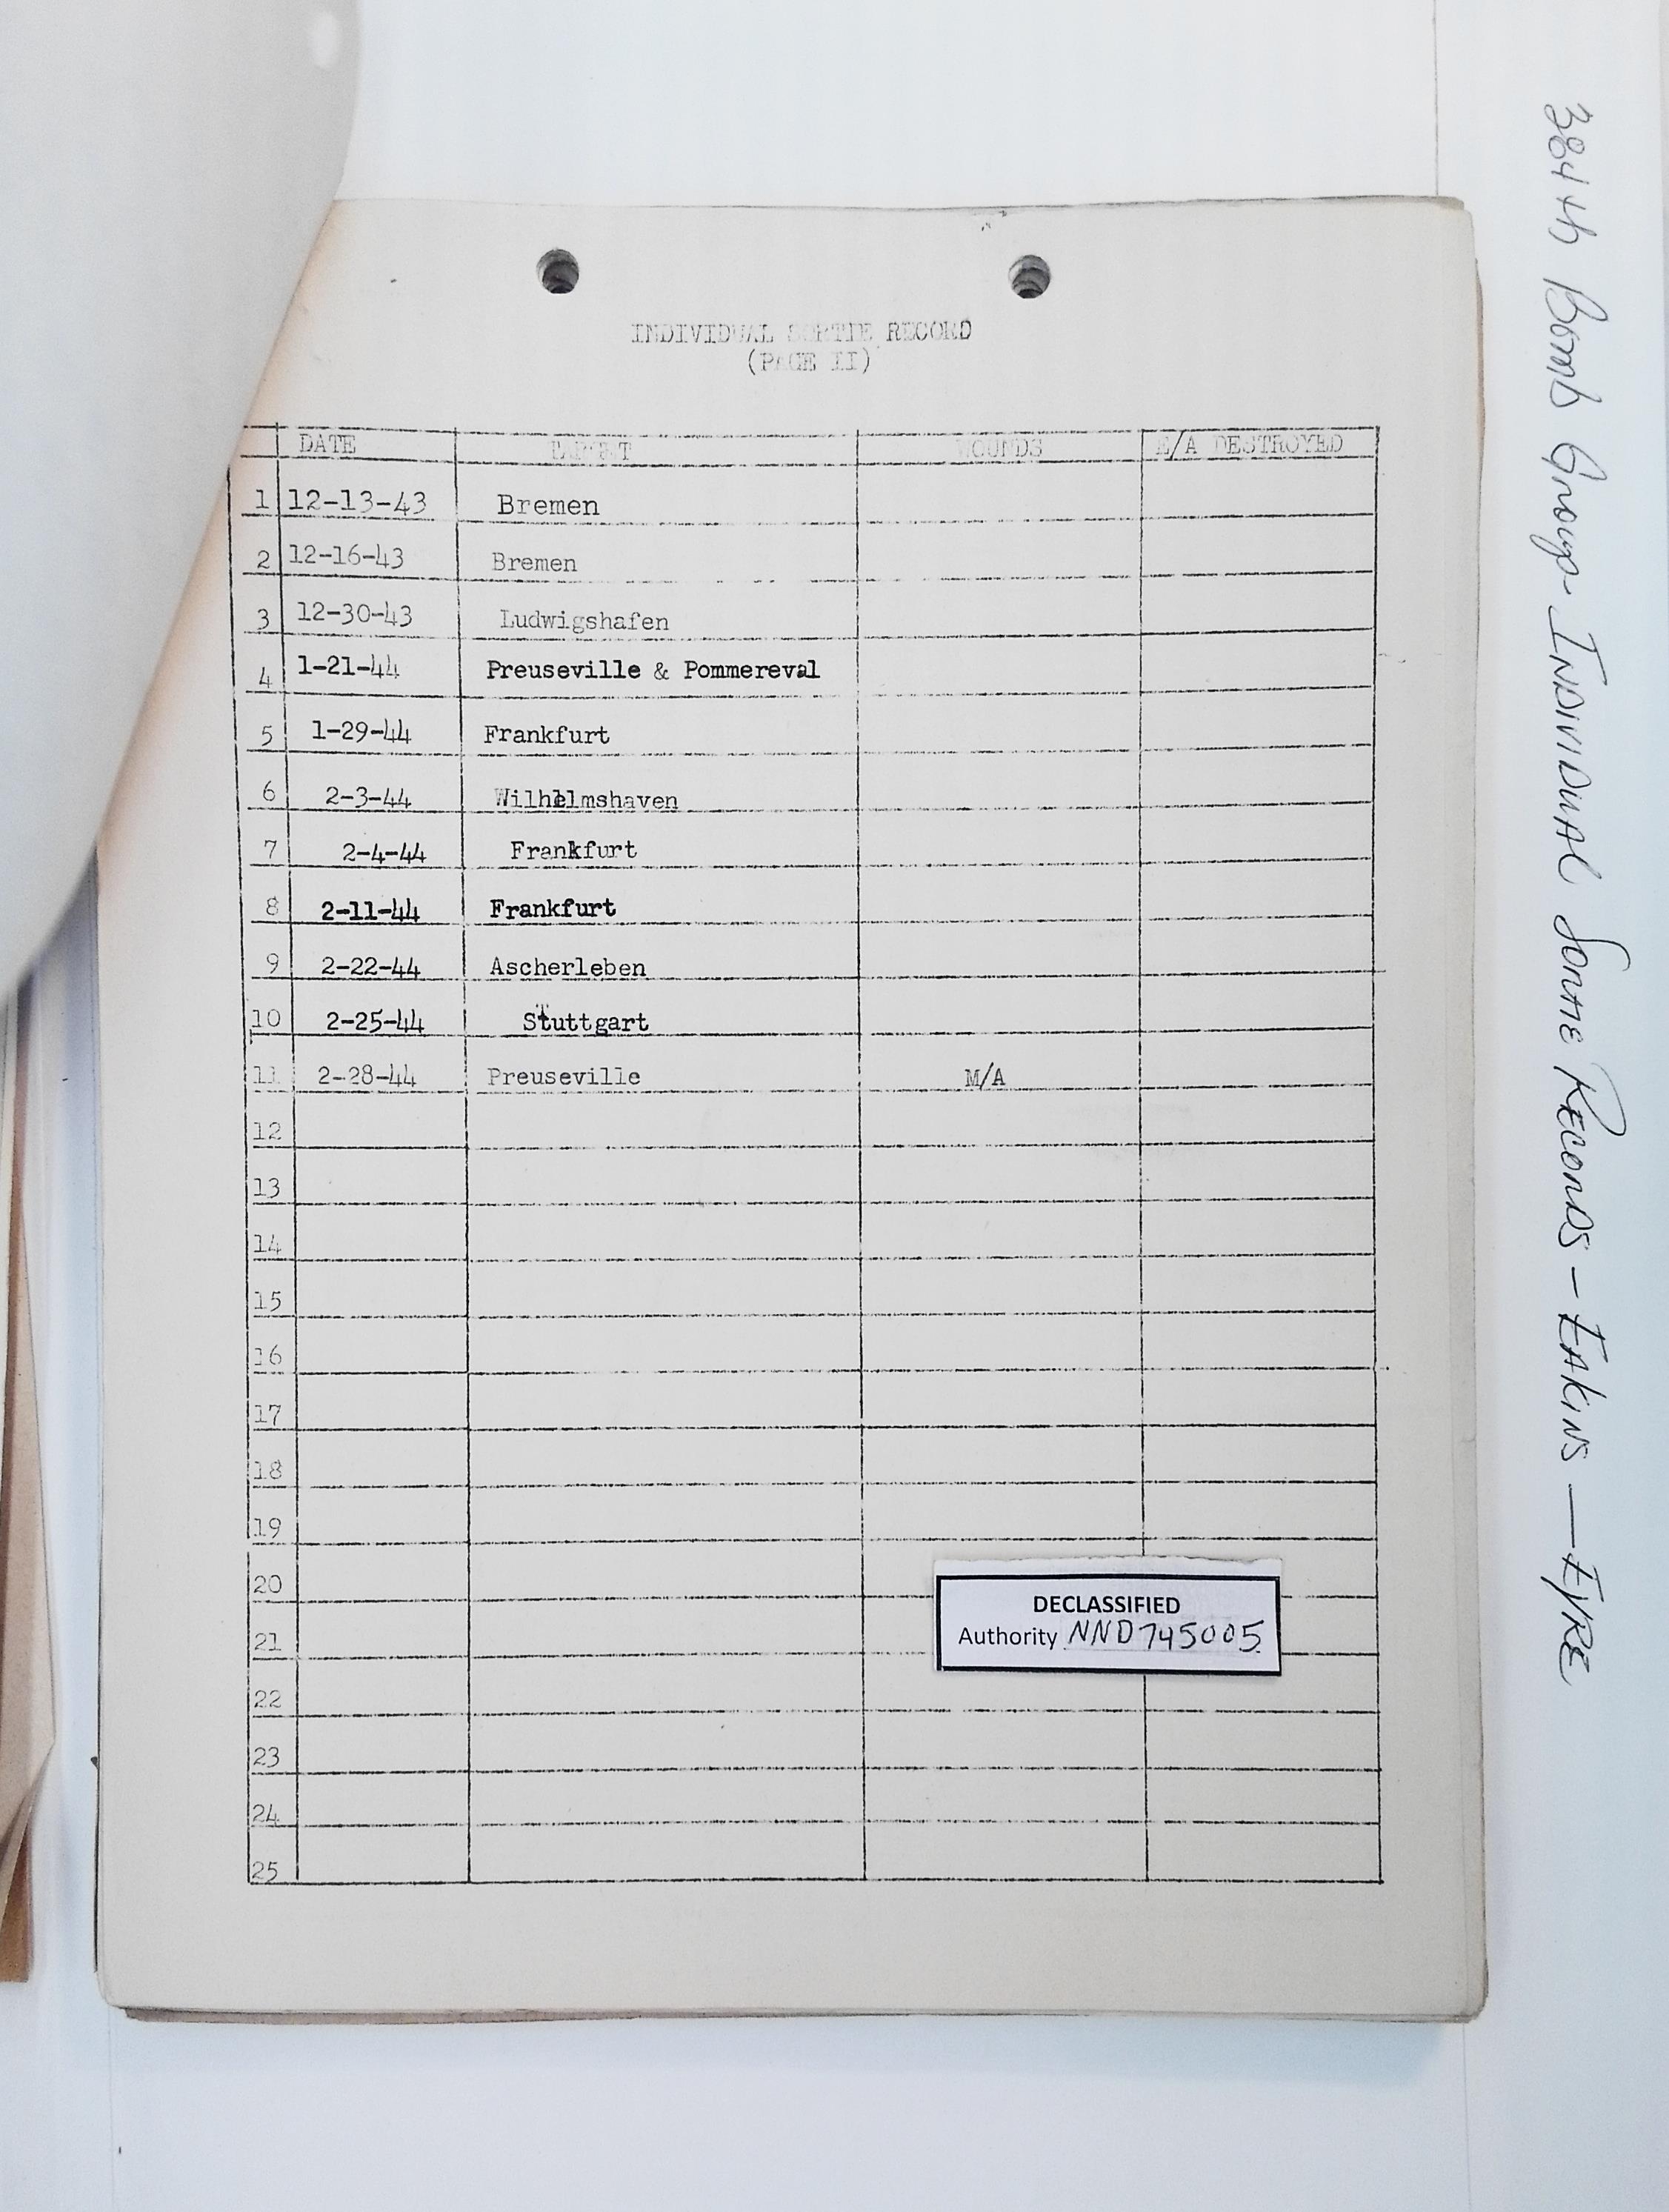 INDIVIDUAL SORTIE RECORD
(PAGE II)
DATE TARGET WOUNDS E/A DESTROYED
1 12-13-43 Bremen
2 12-16-43 Bremen
3 12-30-43 Ludwigshafen
4 1-21-44 Preuseville & Pommereval
5 1-29-44 Frankfurt
6 2-3-44 Wilhelmshaven
7 2-4-44 Frankfurt
8 2-11-44 Frankfurt
9 2-22-44 Ascherleben
10 2-25-44 Stuttgart
11 2-28-44 Preuseville M/A
12
13
14
15
16
17
18
19
20
21
22
23
24
25
DECLASSIFIED
Authority NND745005
384th Bomb Group - INDIVIDUAL SORTIE RECORDS - EAKINS - EYRE